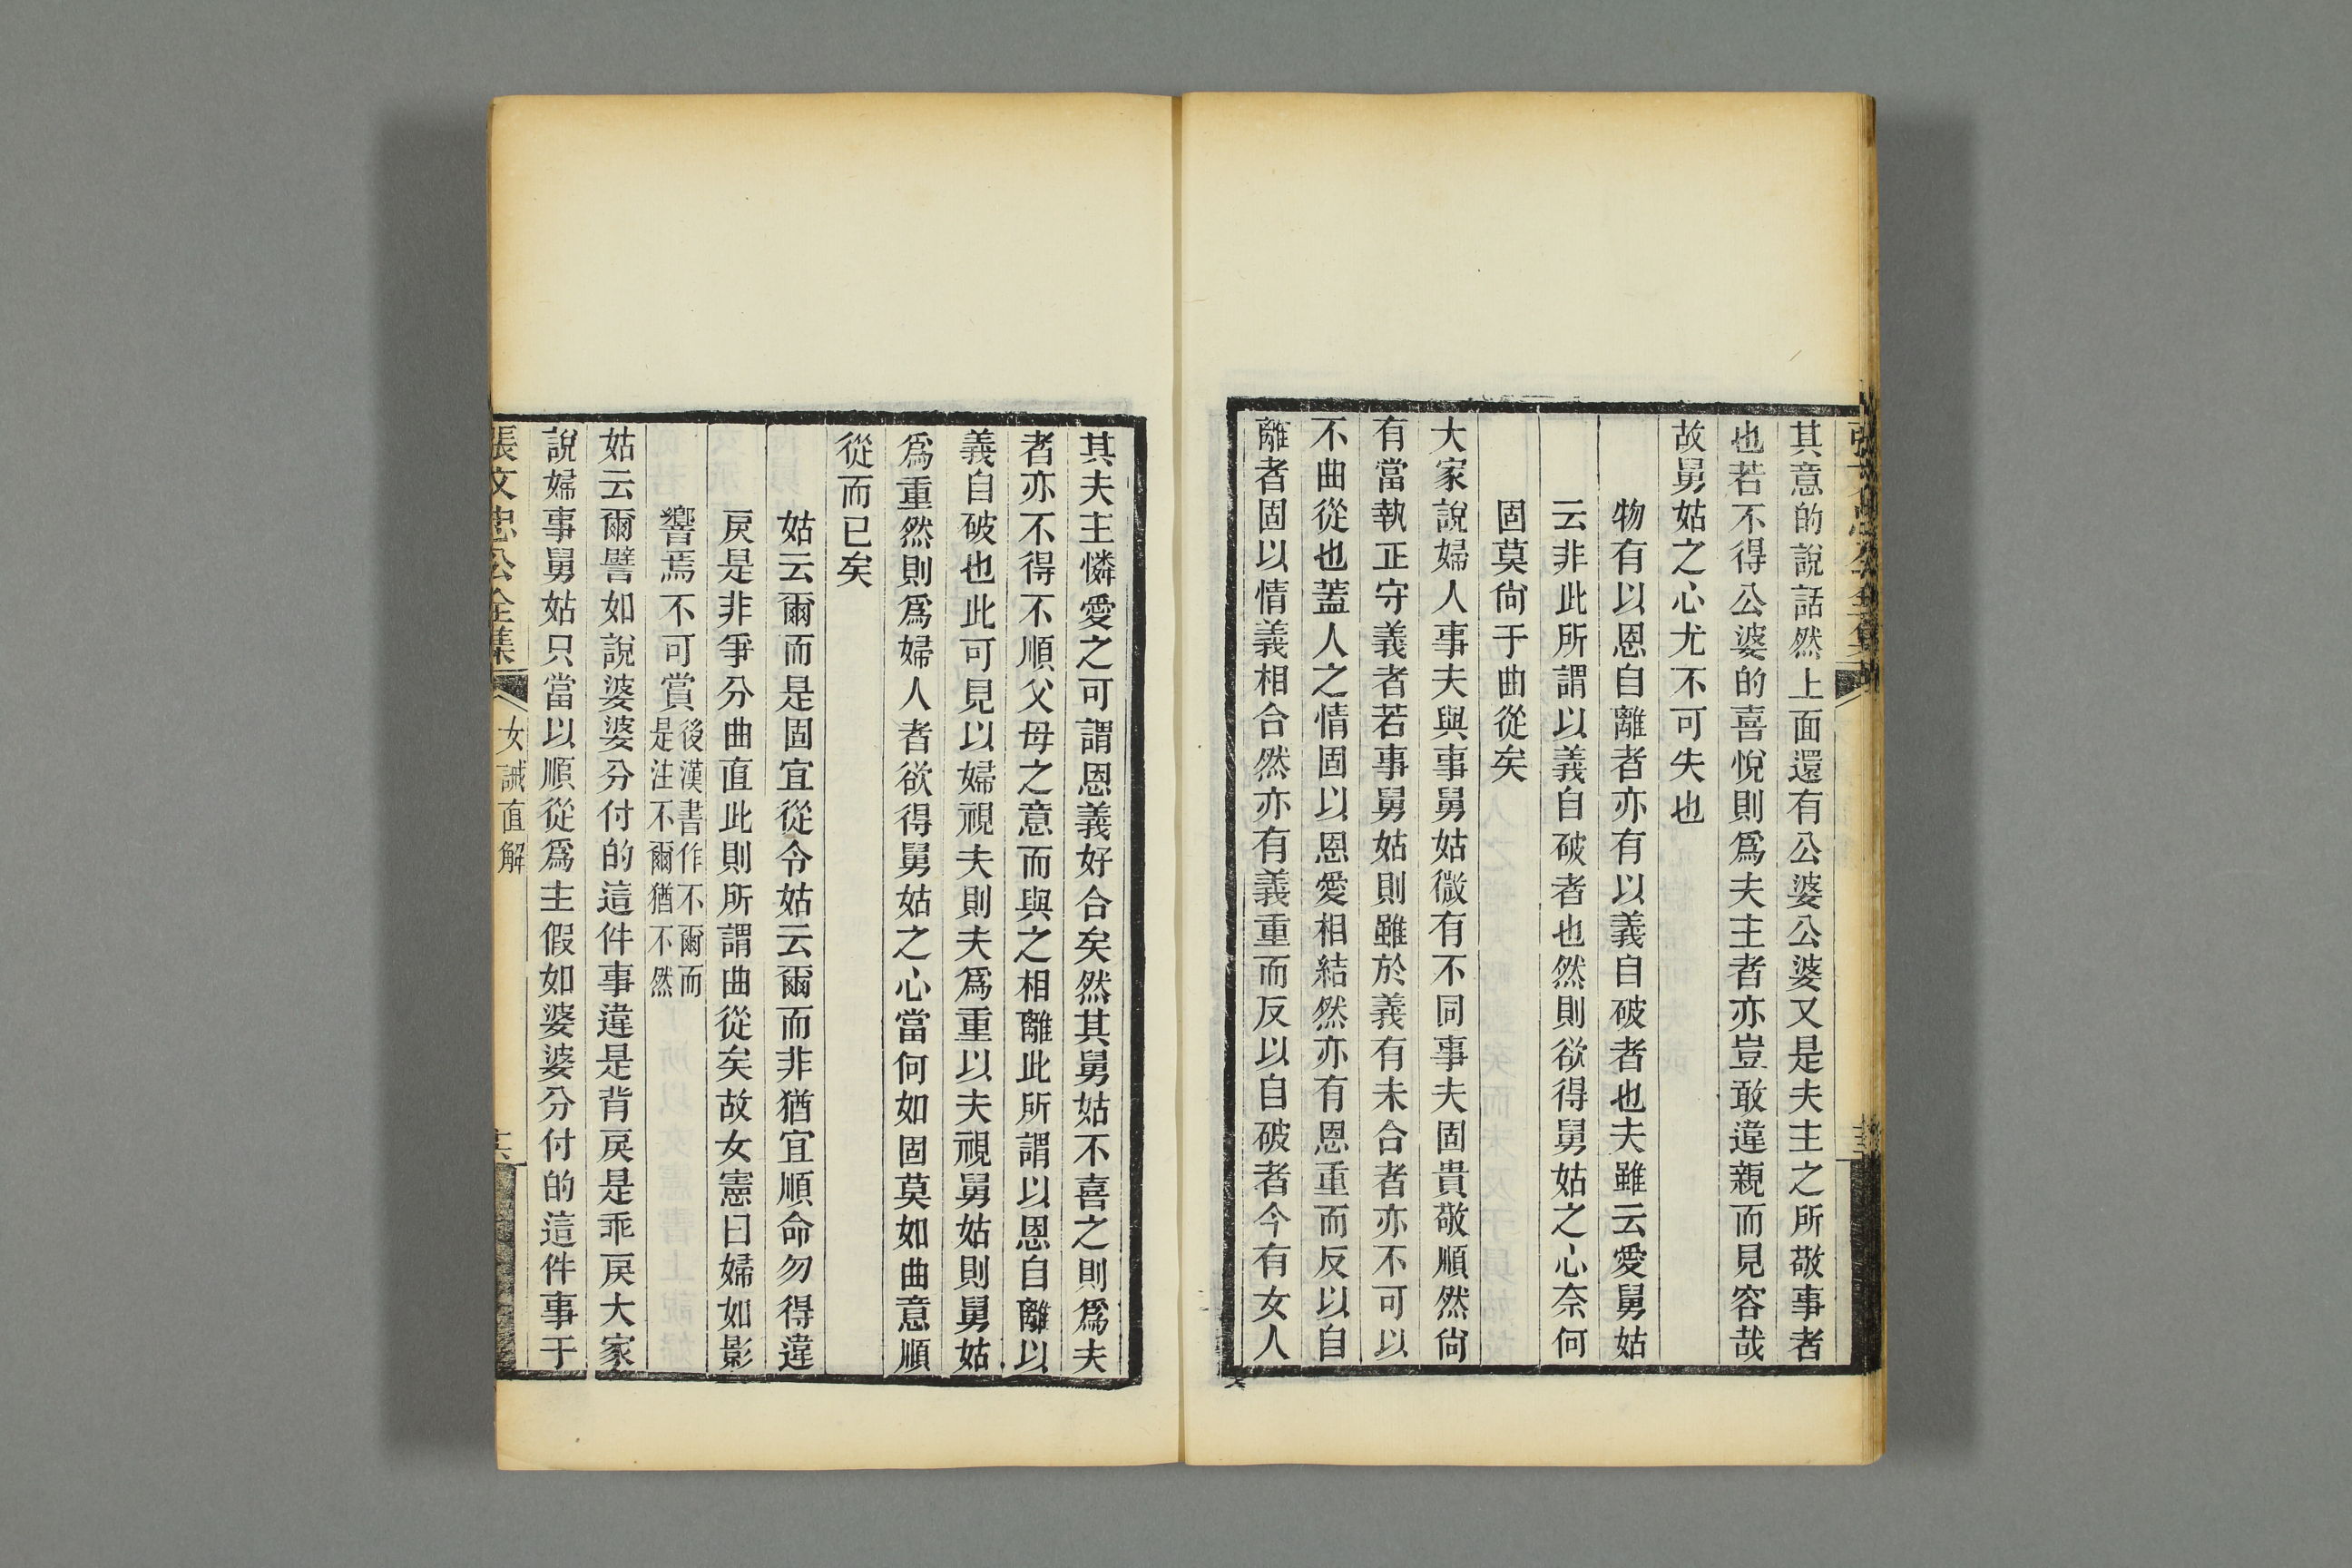 其意的說話然上面還有公婆公婆又是夫主之所敬事者
也若不得公婆的喜悅則爲夫主者亦豈敢違親而見容哉
故舅姑之心尤不可失也
物有以恩自離者亦有以義自破者也夫雖云愛舅姑
云非此所謂以義自破者也然則欲得舅姑之心奈何
固莫尙于曲從矣
大家說婦人事夫與事舅姑微有不同事夫固貴敬順然尙
有當執正守義者若事舅姑則雖於義有未合者亦不可以
不曲從也蓋人之情固以恩愛相結然亦有恩重而反以自
離者固以情義相合然亦有義重而反以自破者今有女人
其夫主憐愛之可謂恩義好合矣然其舅姑不喜之則爲夫
者亦不得不順父母之意而與之相離此所謂以恩自離以
義自破也此可見以婦視夫則夫爲重以夫視舅姑則舅姑
爲重然則爲婦人者欲得舅姑之心當何如固莫如曲意順
從而已矣
姑云爾而是固宜從令姑云爾而非猶宜順命勿得違
戾是非爭分曲直此則所謂曲從矣故女憲曰婦如影
響焉不可賞後漢書作不爾而
是注不爾猶不然
姑云爾譬如說婆婆分付的這件事違是背戾是乖戾大家
說婦事舅姑只當以順從爲主假如婆婆分付的這件事于
張文忠公全集 女誡直解